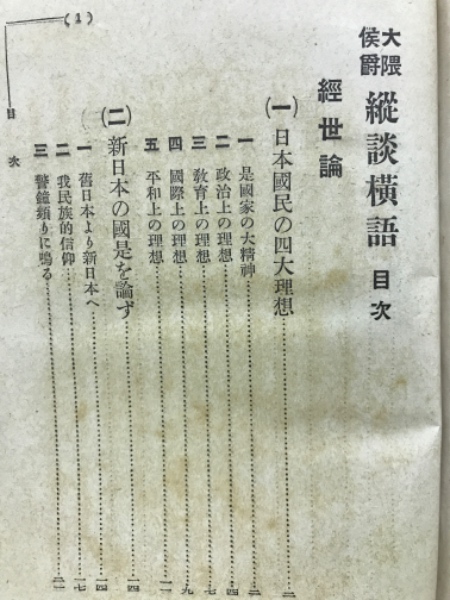 大隈侯爵 縱談横語 目次
經世論
(一) 日本國民の四大理想……二
一 是國家の大精神……二
二 政治上の理想……四
三 敎育上の理想……七
四 國際上の理想……九
五 平和上の理想……一一
(二) 新日本の國是を論ず……一四
一 舊日本より新日本へ……一四
二 我民族的信仰……一七
三 警鐘頻りに鳴る……二一
目次
(1)